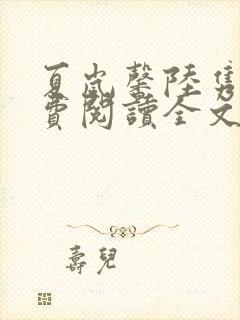 夏嵐馨陸
費閱讀全文
壽兒